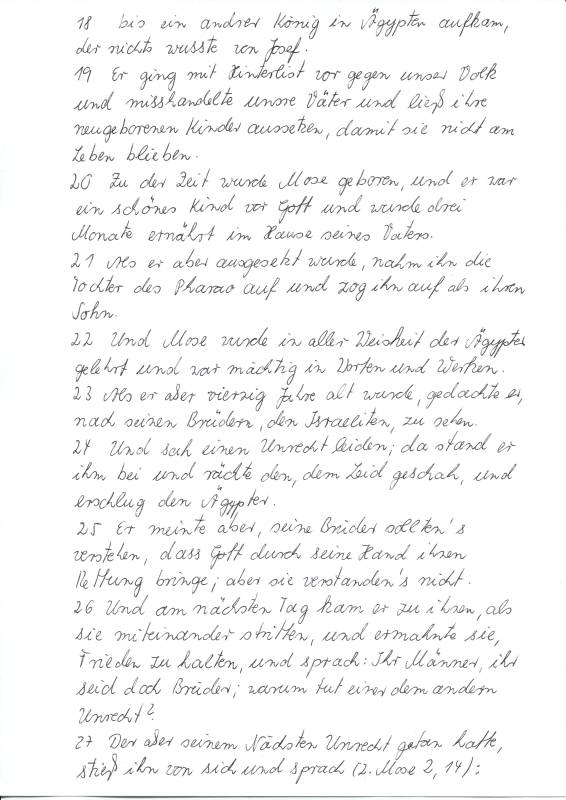 18 bis ein andrer König in Ägypten aufkam,
der nichts wusste von Josef.
19 Er ging mit Hinterlist vor gegen unser Volk
und misshandelte unsre Väter und ließ ihre
neugeborenen Kinder aussetzen, damit sie nicht am
Leben blieben.
20 Zu der Zeit wurde Mose geboren, und er war
ein schönes Kind vor Gott und wurde drei
Monate ernährt im Hause seines Vaters.
21 Als er aber ausgesetzt wurde, nahm ihn die
Tochter des Pharao auf und zog ihn auf als ihren
Sohn.
22 Und Mose wurde in aller Weisheit der Ägypter
gelehrt und war mächtig in Worten und Werken.
23 Als er aber vierzig Jahre alt wurde, gedachte er,
nach seinen Brüdern, den Israeliten, zu sehen.
24 Und sah einen Unrecht leiden; da stand er
ihm bei und rächte den, dem Leid geschah, und
erschlug den Ägypter.
25 Er meinte aber, seine Brüder sollten's
verstehen, dass Gott durch seine Hand ihnen
Rettung bringe; aber sie verstanden's nicht.
26 Und am nächsten Tag kam er zu ihnen, als
sie miteinander stritten, und ermahnte sie,
Frieden zu halten, und sprach: Ihr Männer, ihr
seid doch Brüder; warum tut einer dem andern
Unrecht?
27 Der aber seinem Nächsten Unrecht getan hatte,
stieß ihn von sich und sprach (2. Mose 2, 14):